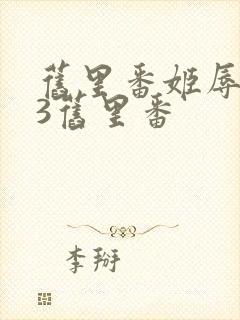 舊里番姬辱
3舊里番
李掰